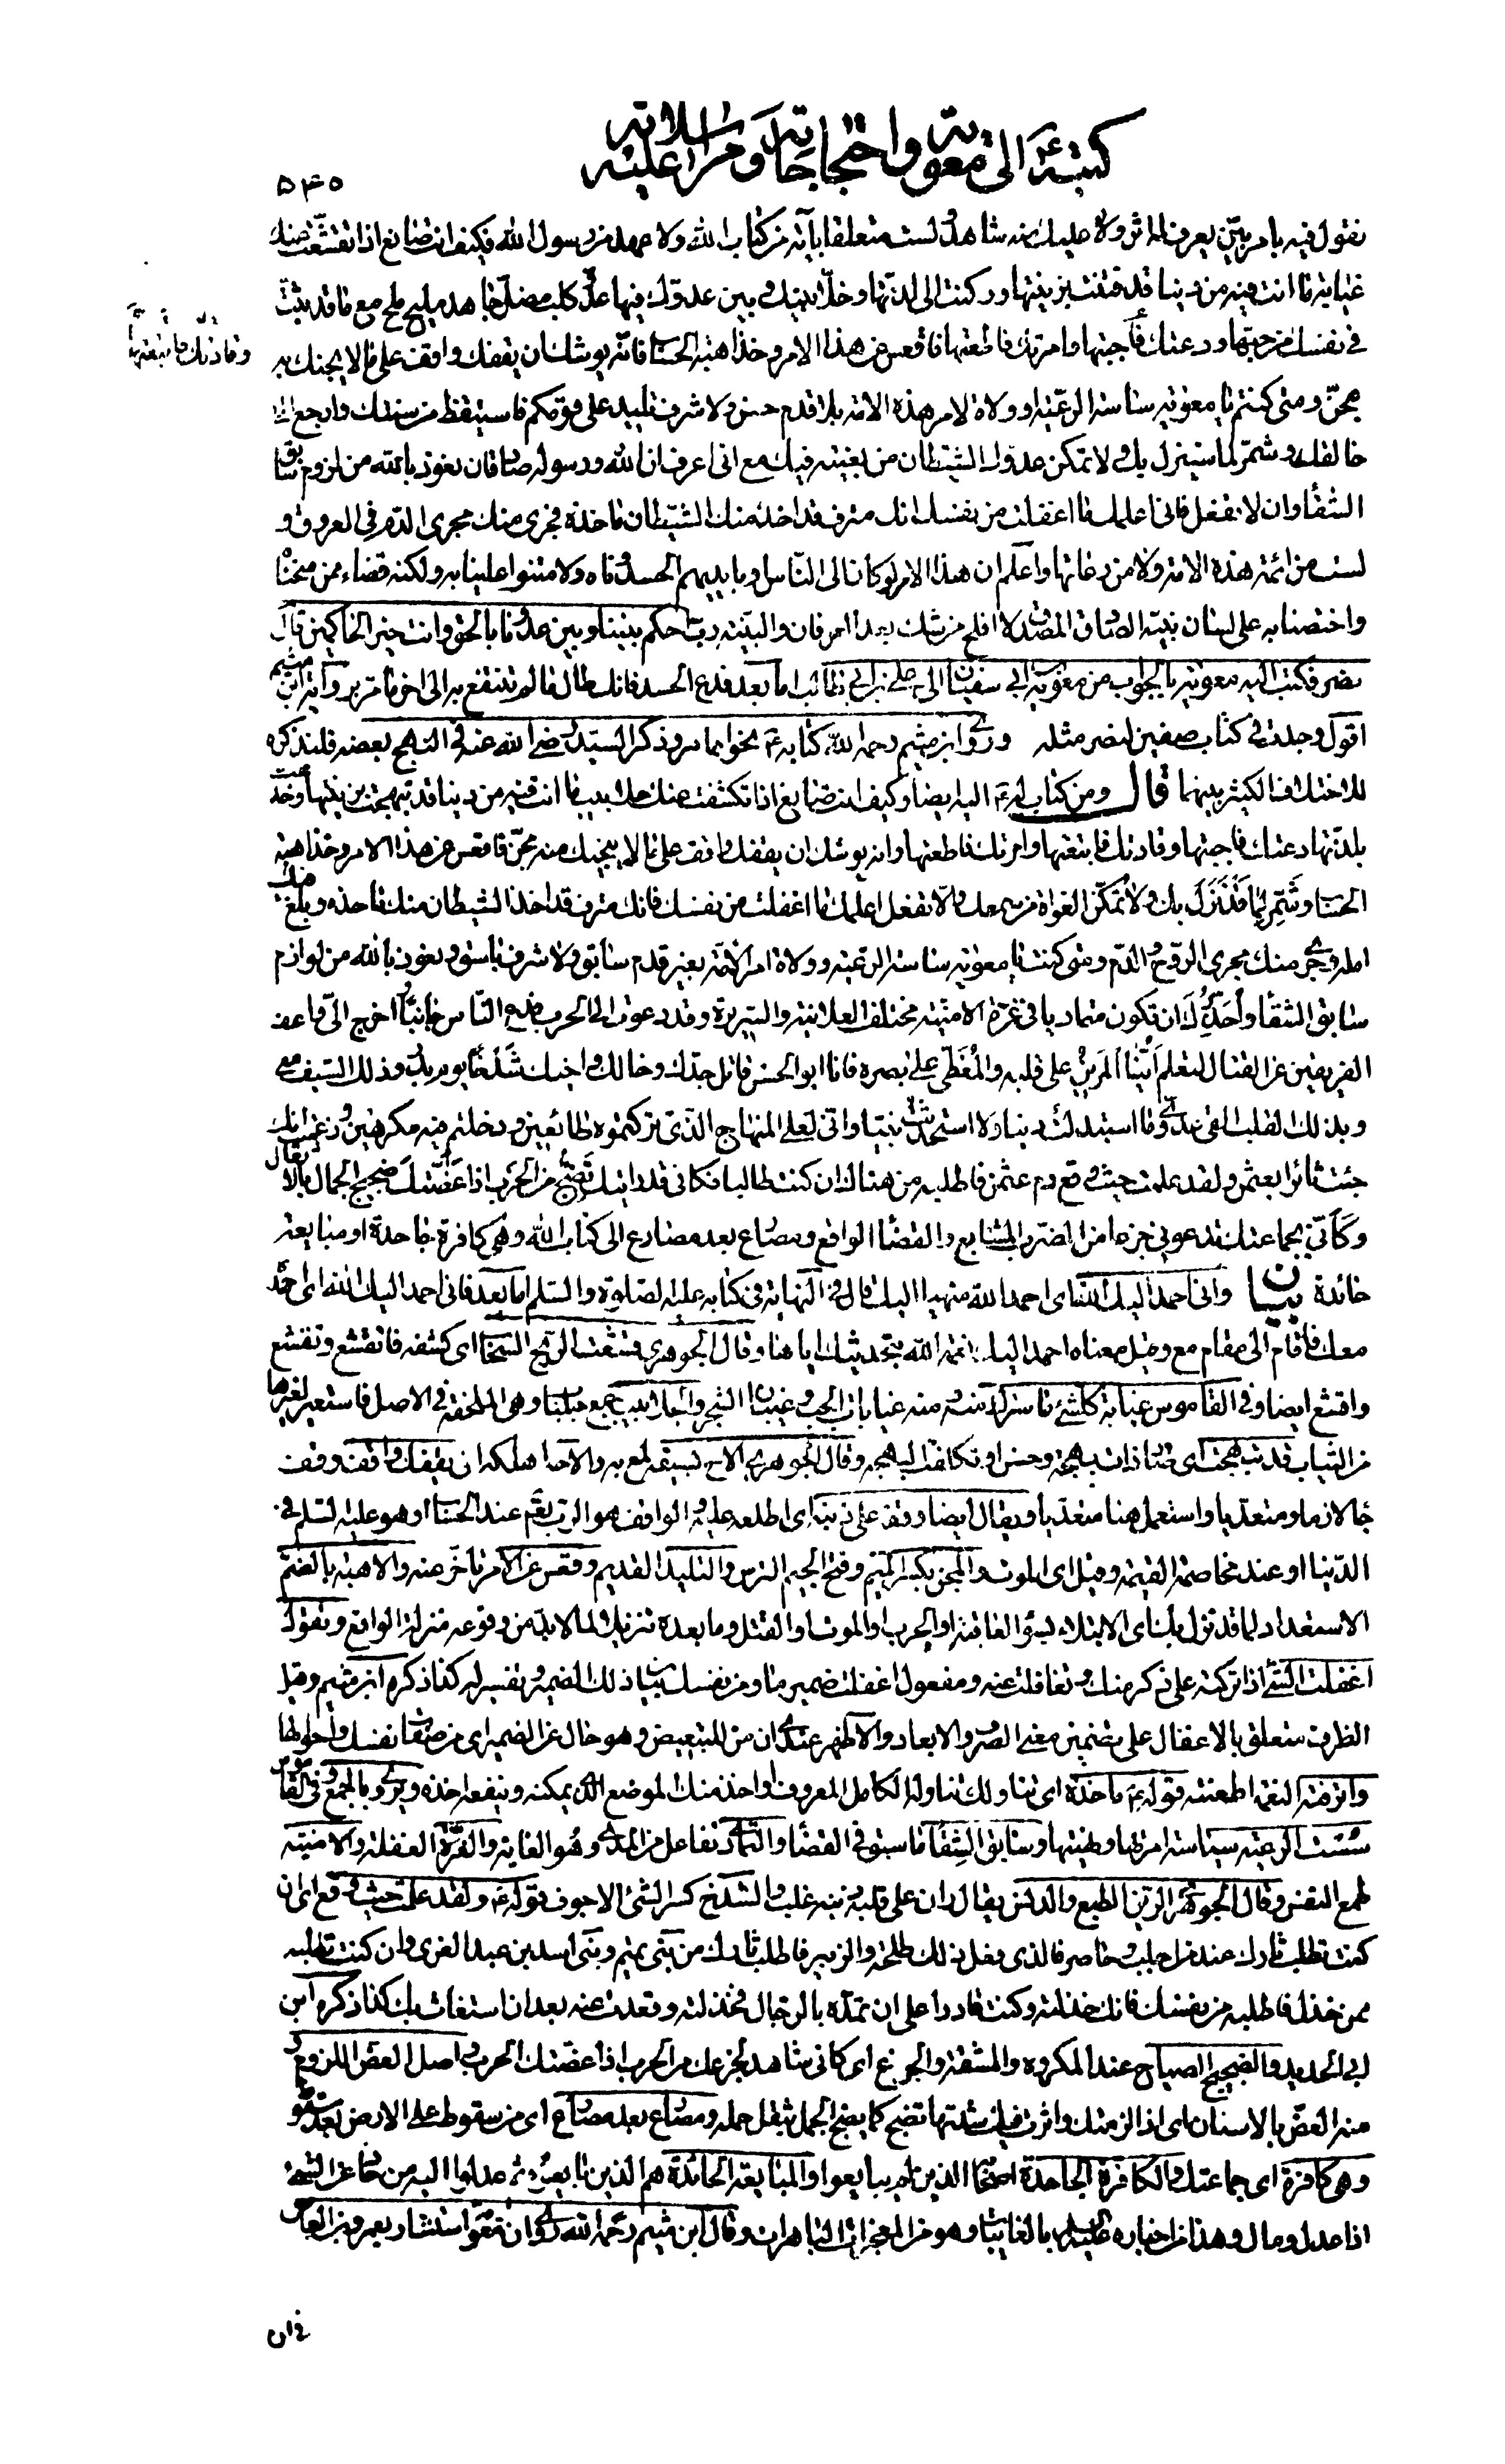 كتبه ع الى معوية واحتجاجاته ومراسلاته عليه
۵۴۵
نقول فيه بامر بيّن يعرف له اثر ولا عليك منه شاهد ولست متعلقا بآية من كتاب الله ولا عهد من رسول الله فكيف انت صانع اذا تقشّعت عنك
غيابة ما انت فيه من دنيا قد فتنت بزينتها وركنت الى لذتها وخلّى بينك وبين عدوّك فيها عدوّ كلب مضلّ جاهد مليح ملح مع ما قد ثبت
وقادتك فاتبعتها
في نفسك من حبّها ودعتك فأجبتها وامرتك فاطعتها فاقعس عن هذا الامر وخذ اهبة الحساب فانّه يوشك ان يقفك واقف على ما لا يجنك به
مجنّ ومتى كنتم يا معوية ساسة الرعيّة او ولاة لامر هذه الامة بلا قدم حسن ولا شرف تليد على قومكم فاستيقظ من سنتك وارجع الى
خالقك وشمّر لما سينزل بك ولا تمكن عدوك الشيطان من بغيته فيك مع انى اعرف ان الله ورسوله صادقان نعوذ بالله من لزوم سابق
الشقاء وان لا تفعل فانى اعلمك ما اغفلت من نفسك انك مترف قد اخذ منك الشيطان ماخذه فجرى منك مجرى الدم فى العروق و
لست من ائمة هذه الامة ولا من رعاتها واعلم ان هذا الامر لو كان الى الناس وبايديهم لحسدوناه ولامتنوا علينا به ولكنه قضاء ممن منحناه
واختصنا به على لسان نبيّه الصادق المصدق لا افلح من شك بعد العرفان والبيّنة ربّ احكم بيننا وبين عدوّنا بالحق وانت خير الحاكمين قال
نصر فكتب اليه معوية بالجواب من معوية بن ابي سفيان الى على بن ابي طالب اما بعد فدع الحسد فانك طال ما لم تنتفع به الى اخر ما مر برواية ابن ميثم
اقول وجدت في كتاب صفين لنصر مثله وروى ابن ميثم رحمه الله كتابه ع نحوا مما مر وذكر السيد رضي الله عنه في النهج بعضه فلنذكره
للاختلاف الكثير بينهما قال ومن كتاب له ع اليه ايضا وكيف انت صانع اذا تكشفت عنك جلابيب ما انت فيه من دنيا قد تبهجت بزينتها وخدعت
بلذتها دعتك فاجبتها وقادتك فاتبعتها وامرتك فاطعتها وانه يوشك ان يقفك واقف على ما لا ينجيك منه مجنّ فاقعس عن هذا الامر وخذ اهبة
الحساب وشَمِّر لِمَا قَدْ نَزَلَ بك ولا تُمَكّن الغواة من سمعك والّا تفعل اعلمك ما اغفلت من نفسك فانك مترف قد اخذ الشيطان منك ماخذه وبلغ فيك
امله وجرى منك مجرى الروح والدّم ومتى كنتم يا معوية ساسة الرعية وولاة امر الامّة بغير قدم سابق ولا شرف باسق ونعوذ بالله من لوازم
سابق الشقاء وأحَذِّرُكَ ان تكون متماديا في غرّة الامنيّة مختلف العلانية والسريرة وقد دعوت الى الحرب فدع الناس جانبًا واخرج الىّ واعف
الفريقين عن القتال لتعلم أيّنا المَرين على قلبه والمُغَطّى على بصره فانا ابو الحسن قاتل جدّك وخالك واخيك شَدْخًا يوم بدر وذلك السيف معى
وبذلك القلب القى عدوى وما استبدلت دينا ولا استحدثت نبيّا وانى لعلى المنهاج الذى تركتموه طائعين ودخلتم فيه مكرهين وزعمت انك
جئت ثائرا بعثمن ولقد علمت حيث وقع دم عثمن فاطلبه من هناك ان كنت طالبا فكانى قد رايتك تَضِجّ من الحَرب اذا عَضّتكَ ضجيج الجمال بالاثقال
وكَأنّى بجماعتك تدعونى جزعا من الضرب المتتابع والقضاء الواقع ومصارع بعد مصارع الى كتاب الله وهى كافرة جاحدة او مبايعة
حائدة بيان وانى احمد اليك الله اى احمد الله منهيا اليك قال في النهاية في كتابه عليه الصلوة والسلم اما بعد فانى احمد اليك الله اى احمده
معك فاقام الى مقام مع وقيل معناه احمد اليك نعمة الله بتحديثك اياها وقال الجوهرى قشعت الريح السحاب اى كشفه فانقشع وتقشع
واقشع ايضا وفي القاموس غيابة كلّ شىء ما سترك منه ومنه غيابات الجب وغيبان الشجر والجلابيب جمع جلباب وهى الملحفة في الاصل فاستعير لغيرها
من الثياب قد تبهجت اى صارت ذات بهجة وحسن او تكلفت البهجة وقال الجوهرى الاح بسيفه لمع به والاحه اهلكه ان يقفك واقف وقف
جاء لازما ومتعديا واستعمل هنا متعديا ويقال ايضا وقفه على ذنبه اى اطلعه عليه والواقف هو الرب تعم عند الحساب او هو عليه السلم في
الدّنيا او عند مخاصمة القيمة وقيل اى الموت والمجن بكسر الميم وفتح الجيم الترس والتليد القديم وقعس عن الامر تأخر عنه والاهبة بالضم
الاستعداد لما قد نزل بك اى الابتلاء بسوء العاقبة او الحرب او الموت او القتل وما بعده تنزيلا لما لابد من وقوعه منزلة الواقع وتقول
اغفلت الشىء اذا تركته على ذكر منك وتغافلت عنه ومفعول اغفلت ضمير ما ومن نفسك بيان ذلك الضمير وتفسير له كذا ذكره ابن ميثم وقيل
الظرف متعلق بالاغفال على تضمين معنى الصرف والابعاد والاظهر عندى ان من للتبعيض وهو حال عن الضمير اى من صفات نفسك واحوالها
واترفته النعمة اطغته قوله ع ماخذه اى تناولك تناوله الكامل المعروف او اخذ منك الموضع الذى يمكنه وينفعه اخذه ويروى بالجمع وفى القاموس
سُسْت الرعية سياسة امرتها ونهيتها وسابق الشقاء ما سبق في القضاء والتمادى تفاعل من المدى وهو الغاية والغرّة الغفلة والامنية
طمع النفس وقال الجوهرى الرين الطبع والدنس يقال ران على قلبه ذنبه غلب والشدخ كسر الشىء الاجوف قوله ع ولقد علمت حيث وقع اى ان
كنت تطلب ثارك عند من اجلب وحاصر فالذى فعل ذلك طلحة والزبير فاطلب ثارك من بنى تيم وبنى اسد بن عبد العزى وان كنت تطلبه
ممن خذل فاطلبه من نفسك فانك خذلته وكنت قادرا على ان تمدّه بالرجال فخذلته وقعدت عنه بعد ان استغاث بك كذا ذكره ابن
ابي الحديد والضجيج الصياح عند المكروه والمشقة والجزع اى كانى شاهد لجزعك من الحرب اذا عضتك الحرب واصل العض اللزوم و
منه العضّ بالاسنان اى اذا لزمتك واثرت فيك شدتها تضج كما يضج الجمل بثقل حمله ومصارع بعد مصارع اى من سقوط على الارض بعد سقوط
وهى كافرة اى جماعتك والكافرة الجاحدة اصحابه الذين لم يبايعوا والمبايعة الحائدة هم الذين بايعوه ثم عدلوا اليه من حاد عن الشىء
اذا عدل ومال وهذا من اخباره عليه السلم بالغايبات وهو من المعجزات الباهرات وقال ابن ميثم رحمه الله روى ان معوية استشار بعمرو بن العاص